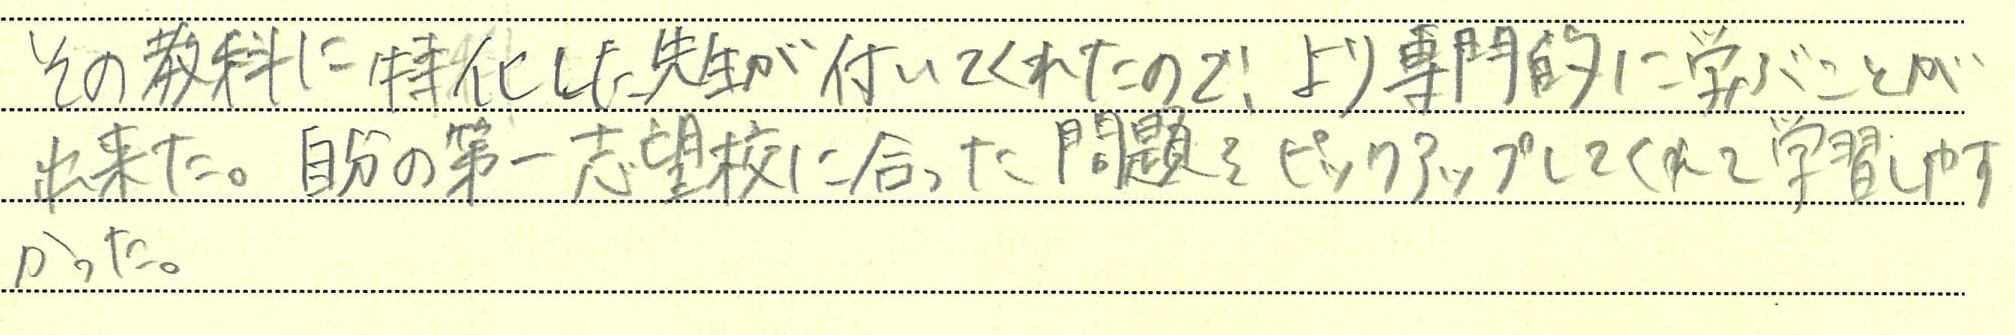 その教科に特化した先生が付いてくれたので、より専門的に学ぶことが
出来た。自分の第一志望校に合った問題をピックアップしてくれて学習しやす
かった。